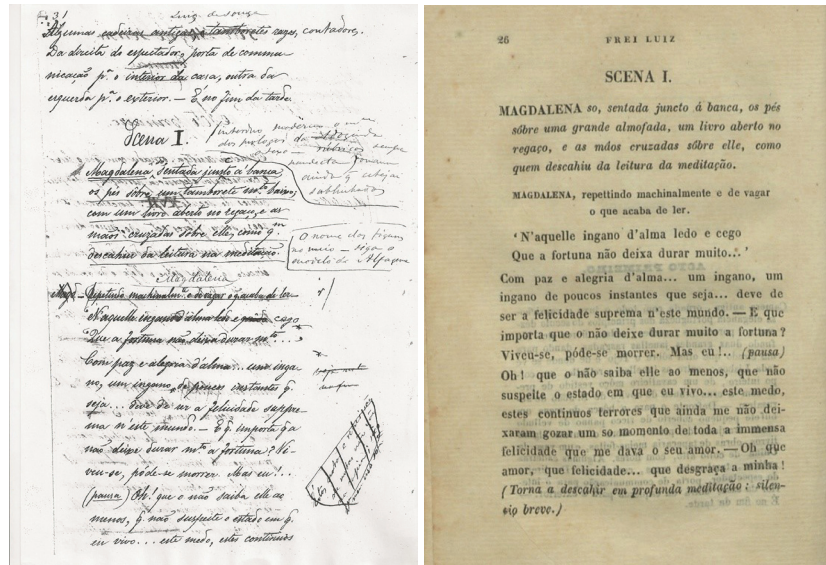 Luiz de Souza
Algumas cadeiras antigas, tamboretes razos, contadores.
Da direita do espectador, porta de commu-
nicação pª. o interior da casa, outra da
esquerda pª. o exterior. — É no fim da tarde.
Scena I.
Magdalena, sentada juncto á banca,
os pés sôbre um tamborete mº. baixo,
com um livro aberto no regaço, e as
mãos cruzadas sôbre elle, como q.
descahiu da leitura na meditação.
O nome das figuras
no meio — siga o
modelo do Alfageme
Magdalena
Repetindo machinalmᵉ. e devagar o q acaba de ler
N'aquelle ingano d'alma ledo e cego
Que a fortuna não deixa durar mᵗᵒ...
Com paz e alegria d'alma... um inga-
no, um ingano de poucos instantes q.
seja... deve de ser a felicidade supre-
ma n'este mundo. — E q. importa q a
não deixe durar mᵗᵒ a fortuna? Vi-
veu-se, póde-se morrer. Mas eu!...
(pausa) Oh! que o não saiba elle ao
menos, q. não suspeite o estado em q.
eu vivo... este medo, estes continuos
26 FREI LUIZ
SCENA I.
MAGDALENA so, sentada juncto á banca, os pés
sôbre uma grande almofada, um livro aberto no
regaço, e as mãos cruzadas sôbre elle, como
quem descahiu da leitura da meditação.
MAGDALENA, repettindo machinalmente e de vagar
o que acaba de ler.
'N'aquelle ingano d'alma ledo e cego
Que a fortuna não deixa durar muito...'
Com paz e alegria d'alma... um ingano, um
ingano de poucos instantes que seja... deve de
ser a felicidade suprema n'este mundo. — E que
importa que o não deixe durar muito a fortuna?
Viveu-se, póde-se morrer. Mas eu!... (pausa)
Oh! que o não saiba elle ao menos, que não
suspeite o estado em que eu vivo... este medo,
estes contínuos terrores que ainda me não dei-
xaram gozar um so momento de toda a immensa
felicidade que me dava o seu amor. — Oh que
amor, que felicidade... que desgraça a minha!
(Torna a descahir em profunda meditação: silen-
cio breve.)